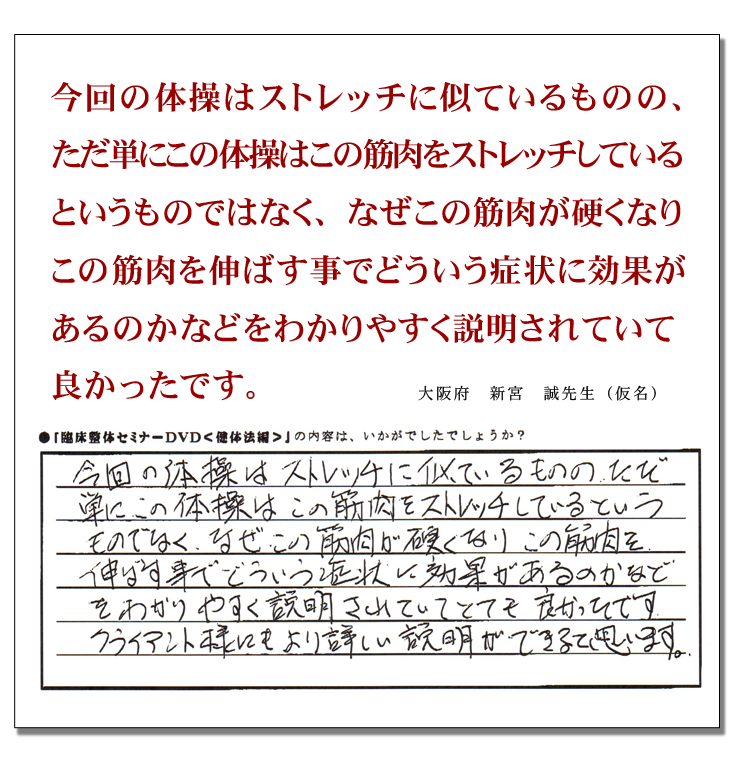 今回の体操はストレッチに似ているものの、
ただ単にこの体操はこの筋肉をストレッチしている
というものではなく、なぜこの筋肉が硬くなり
この筋肉を伸ばす事でどういう症状に効果が
あるのかなどをわかりやすく説明されていて
良かったです。
大阪府 新宮 誠先生（仮名）
●『臨床整体セミナーDVD＜健体法編＞』の内容は、いかがでしたでしょうか？
今回の体操はストレッチに似ているものの、ただ
単にこの体操はこの筋肉をストレッチしているという
ものでなく、なぜこの筋肉が硬くなりこの筋肉を
伸ばす事でどういう症状に効果があるのかなど
をわかりやすく説明されていてとても良かったです。
クライアント様にもより詳しい説明ができると思います。